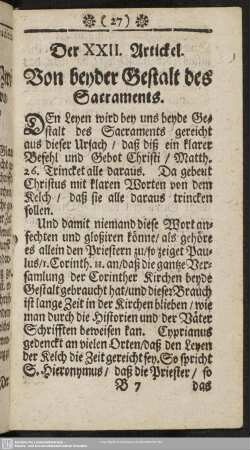 (27)
Der XXII. Artickel.
Von beyder Gestalt des
Sacraments.
DEn Leyen wird bey uns beyde Ge-
stalt des Sacraments gereicht
aus dieser Ursach / daß diß ein klarer
Befehl und Gebot Christi / Matth.
26. Trincket alle daraus. Da gebeut
Christus mit klaren Worten von dem
Kelch / daß sie alle daraus trincken
sollen.
Und damit niemand diese Wort an-
fechten und glosiren könne / als gehöre
es allein den Priestern zu / so zeiget Pau-
lus / 1. Corinth. 11. an / daß die gantze Ver-
samlung der Corinther Kirchen beyde
Gestalt gebraucht hat / und dieser Brauch
ist lange Zeit in der Kirchen blieben / wie
man durch die Historien und der Väter
Schrifften beweisen kan. Cyprianus
gedenckt an vielen Orten / daß den Leyen
der Kelch die Zeit gereicht sey. So spricht
S. Hieronymus / daß die Priester / so
B 7 das